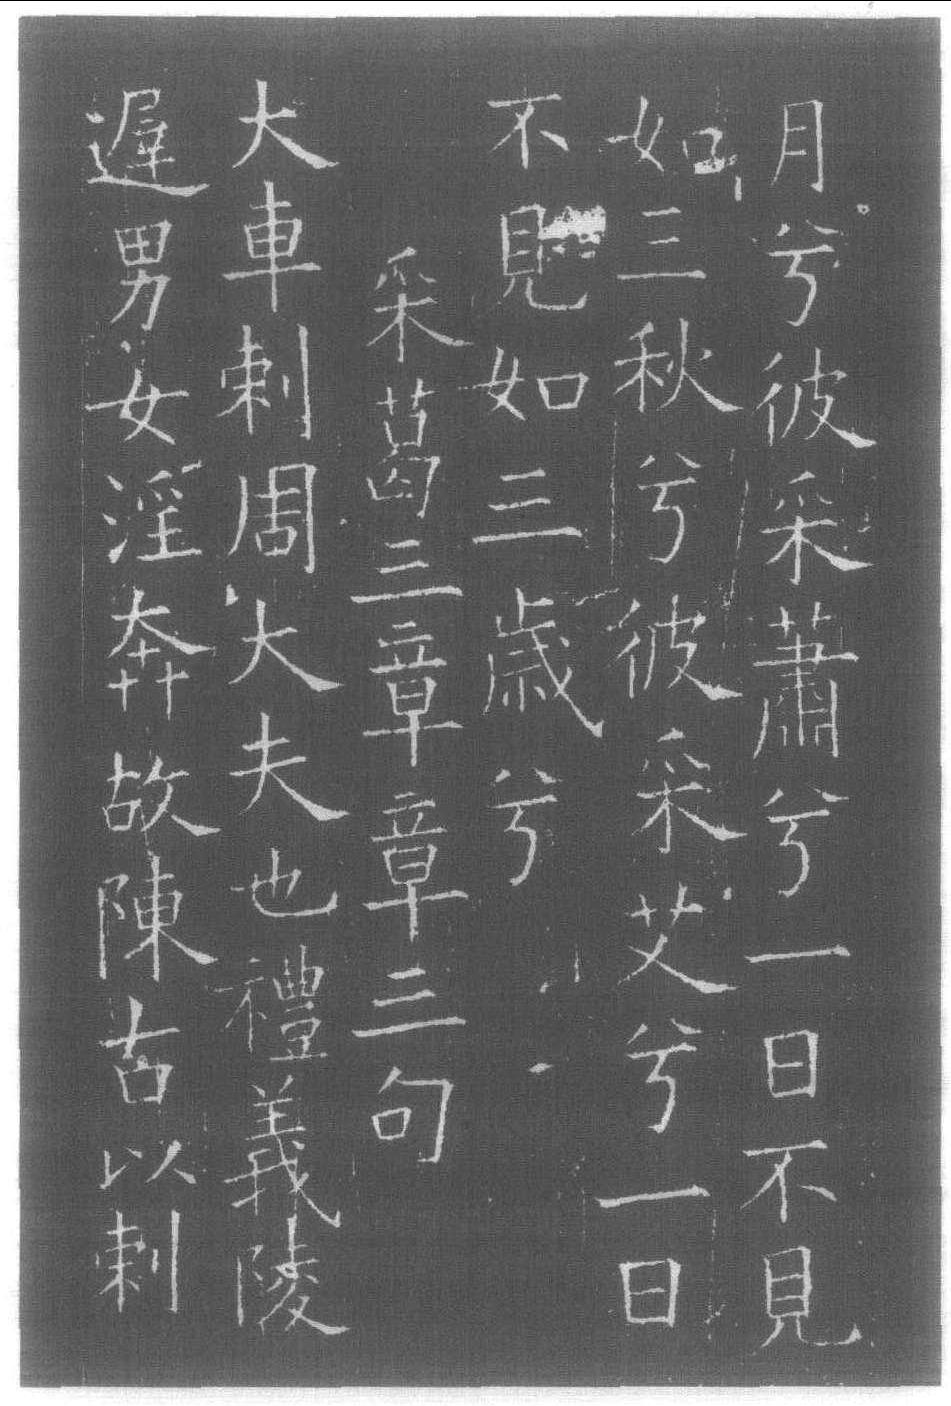 月兮彼采蕭兮一日不見
如三秋兮彼采艾兮一日
不見如三歲兮
采葛三章章三句
大車刺周大夫也禮義陵
遟男女淫奔故陳古以刺